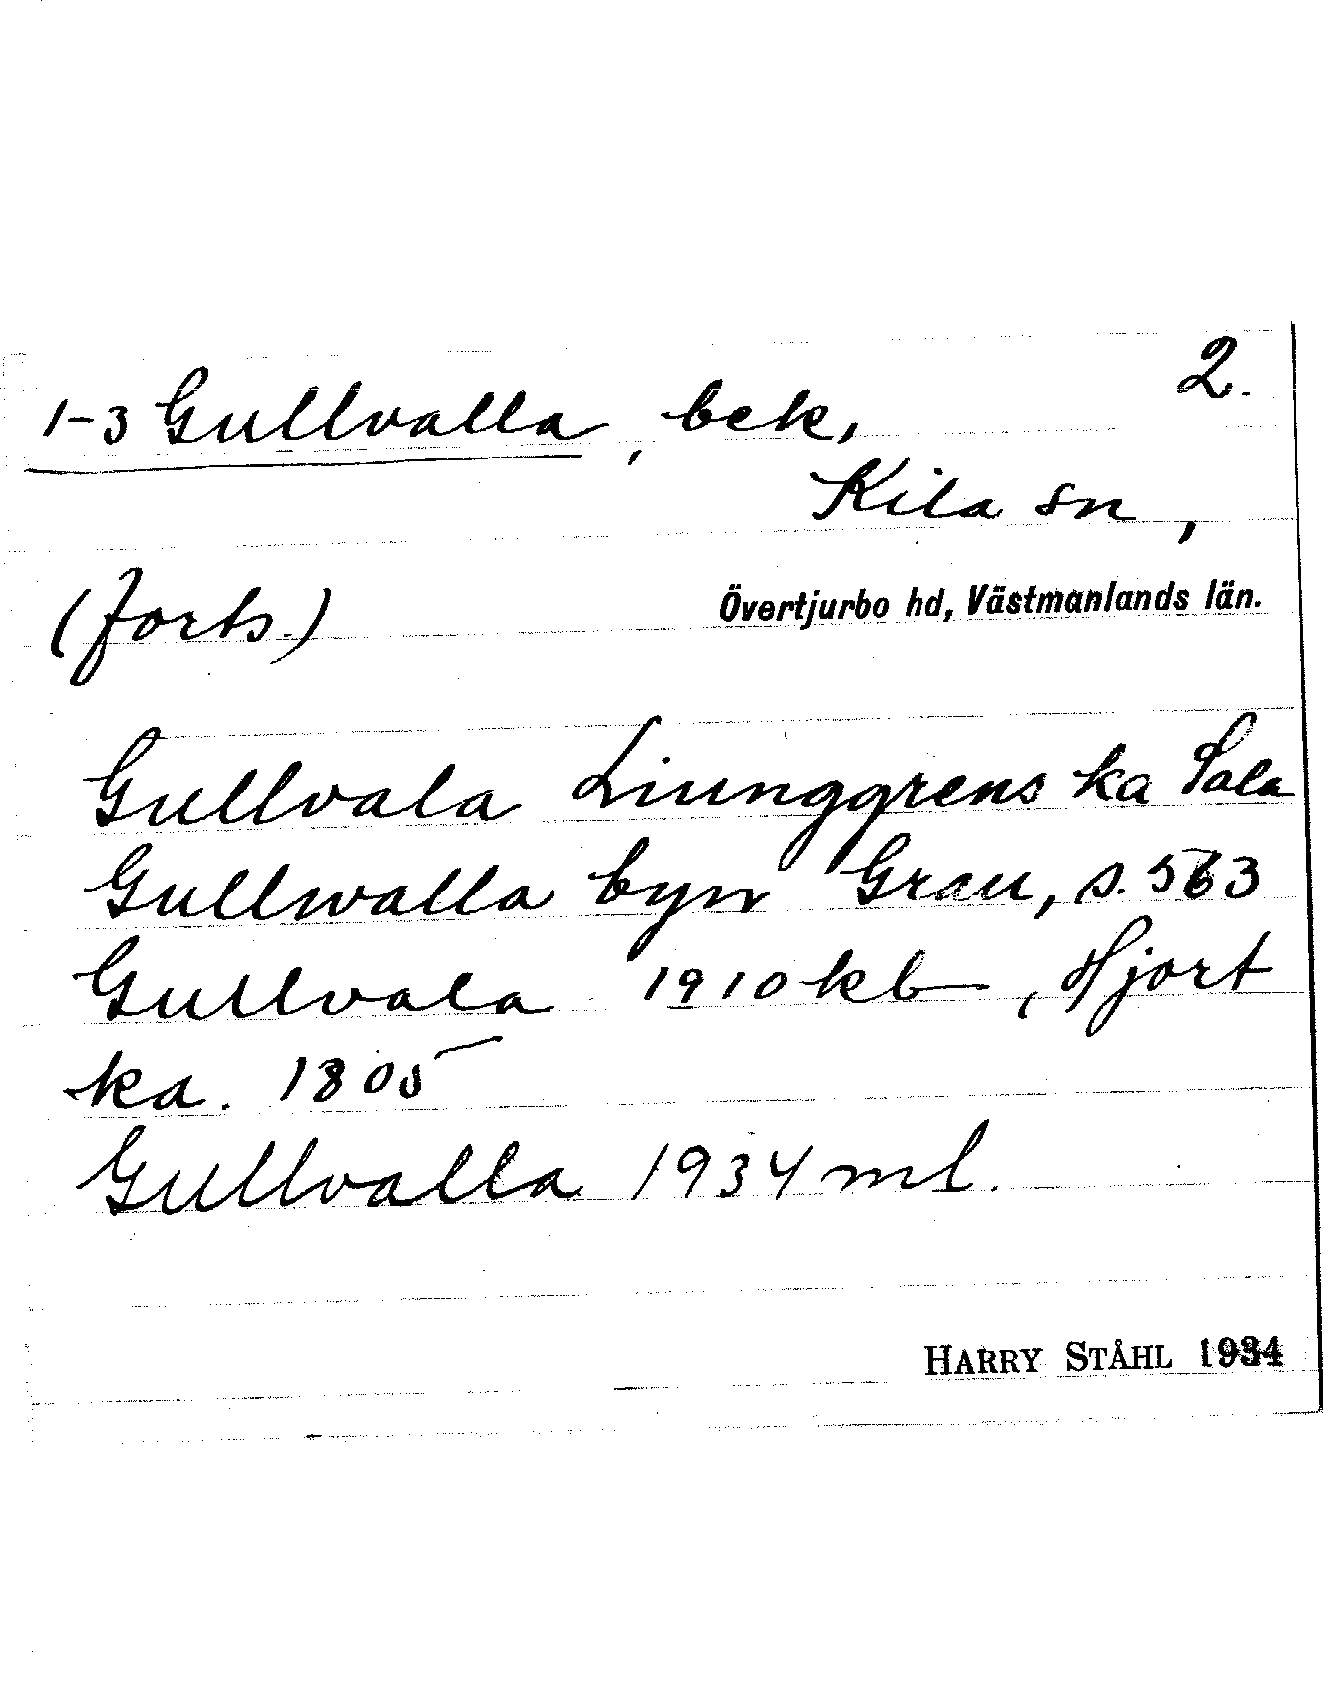 2.
1-3 Gullvalla, bek,
Kila sn,
(forts.)
Övertjurbo hd, Västmanlands län.
Gullvala Liunggrens ka Sala
Gullwalla byn Grau, s. 563
Gullvala 1910 kb, Hjort
ka. 1805
Gullvalla 1934 ml.
HARRY STÅHL 1934